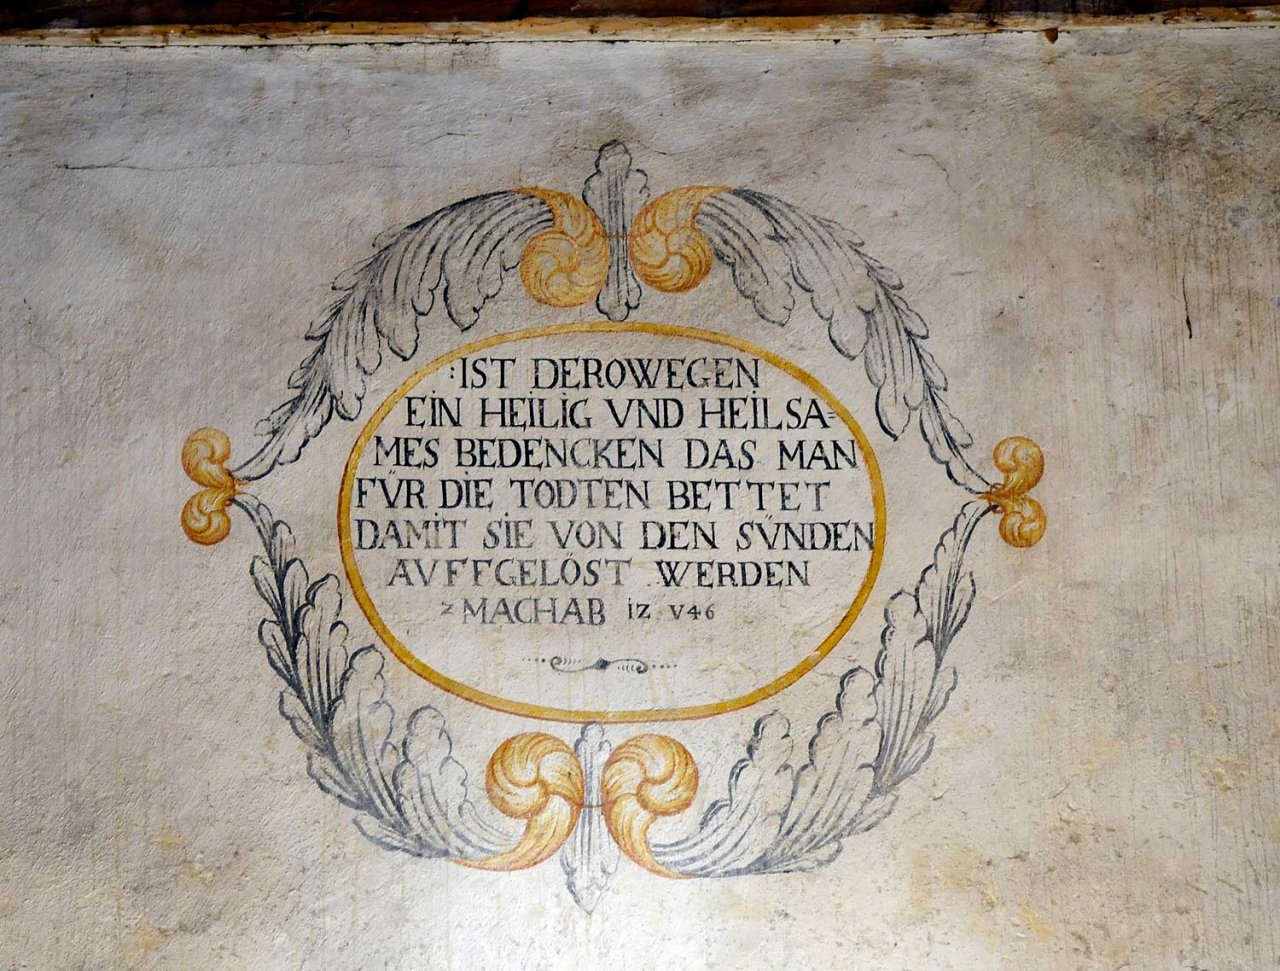 :IST DEROWEGEN
EIN HEILIG VND HEILSA=
MES BEDENCKEN DAS MAN
FV̋R DIE TODTEN BETTET
DAMIT SIE VON DEN SV̋NDEN
AVFFGELÖST WERDEN
2 MACHAB iz v46